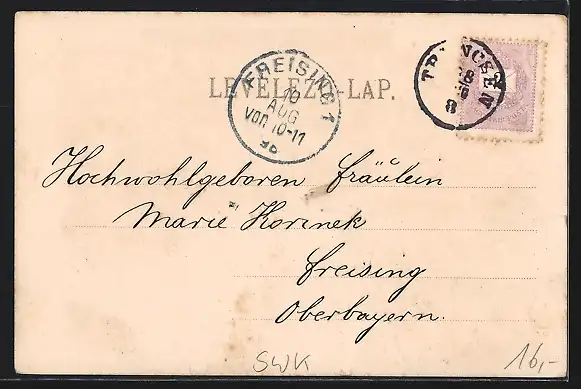 LEVELEZŐ-LAP.
FREISING 1
10
AUG
VON 10-11
96
TRENCSÉN
2
Hochwohlgeboren Fräulein
Marie Korinek
Freising
Oberbayern.
SWK
16,-